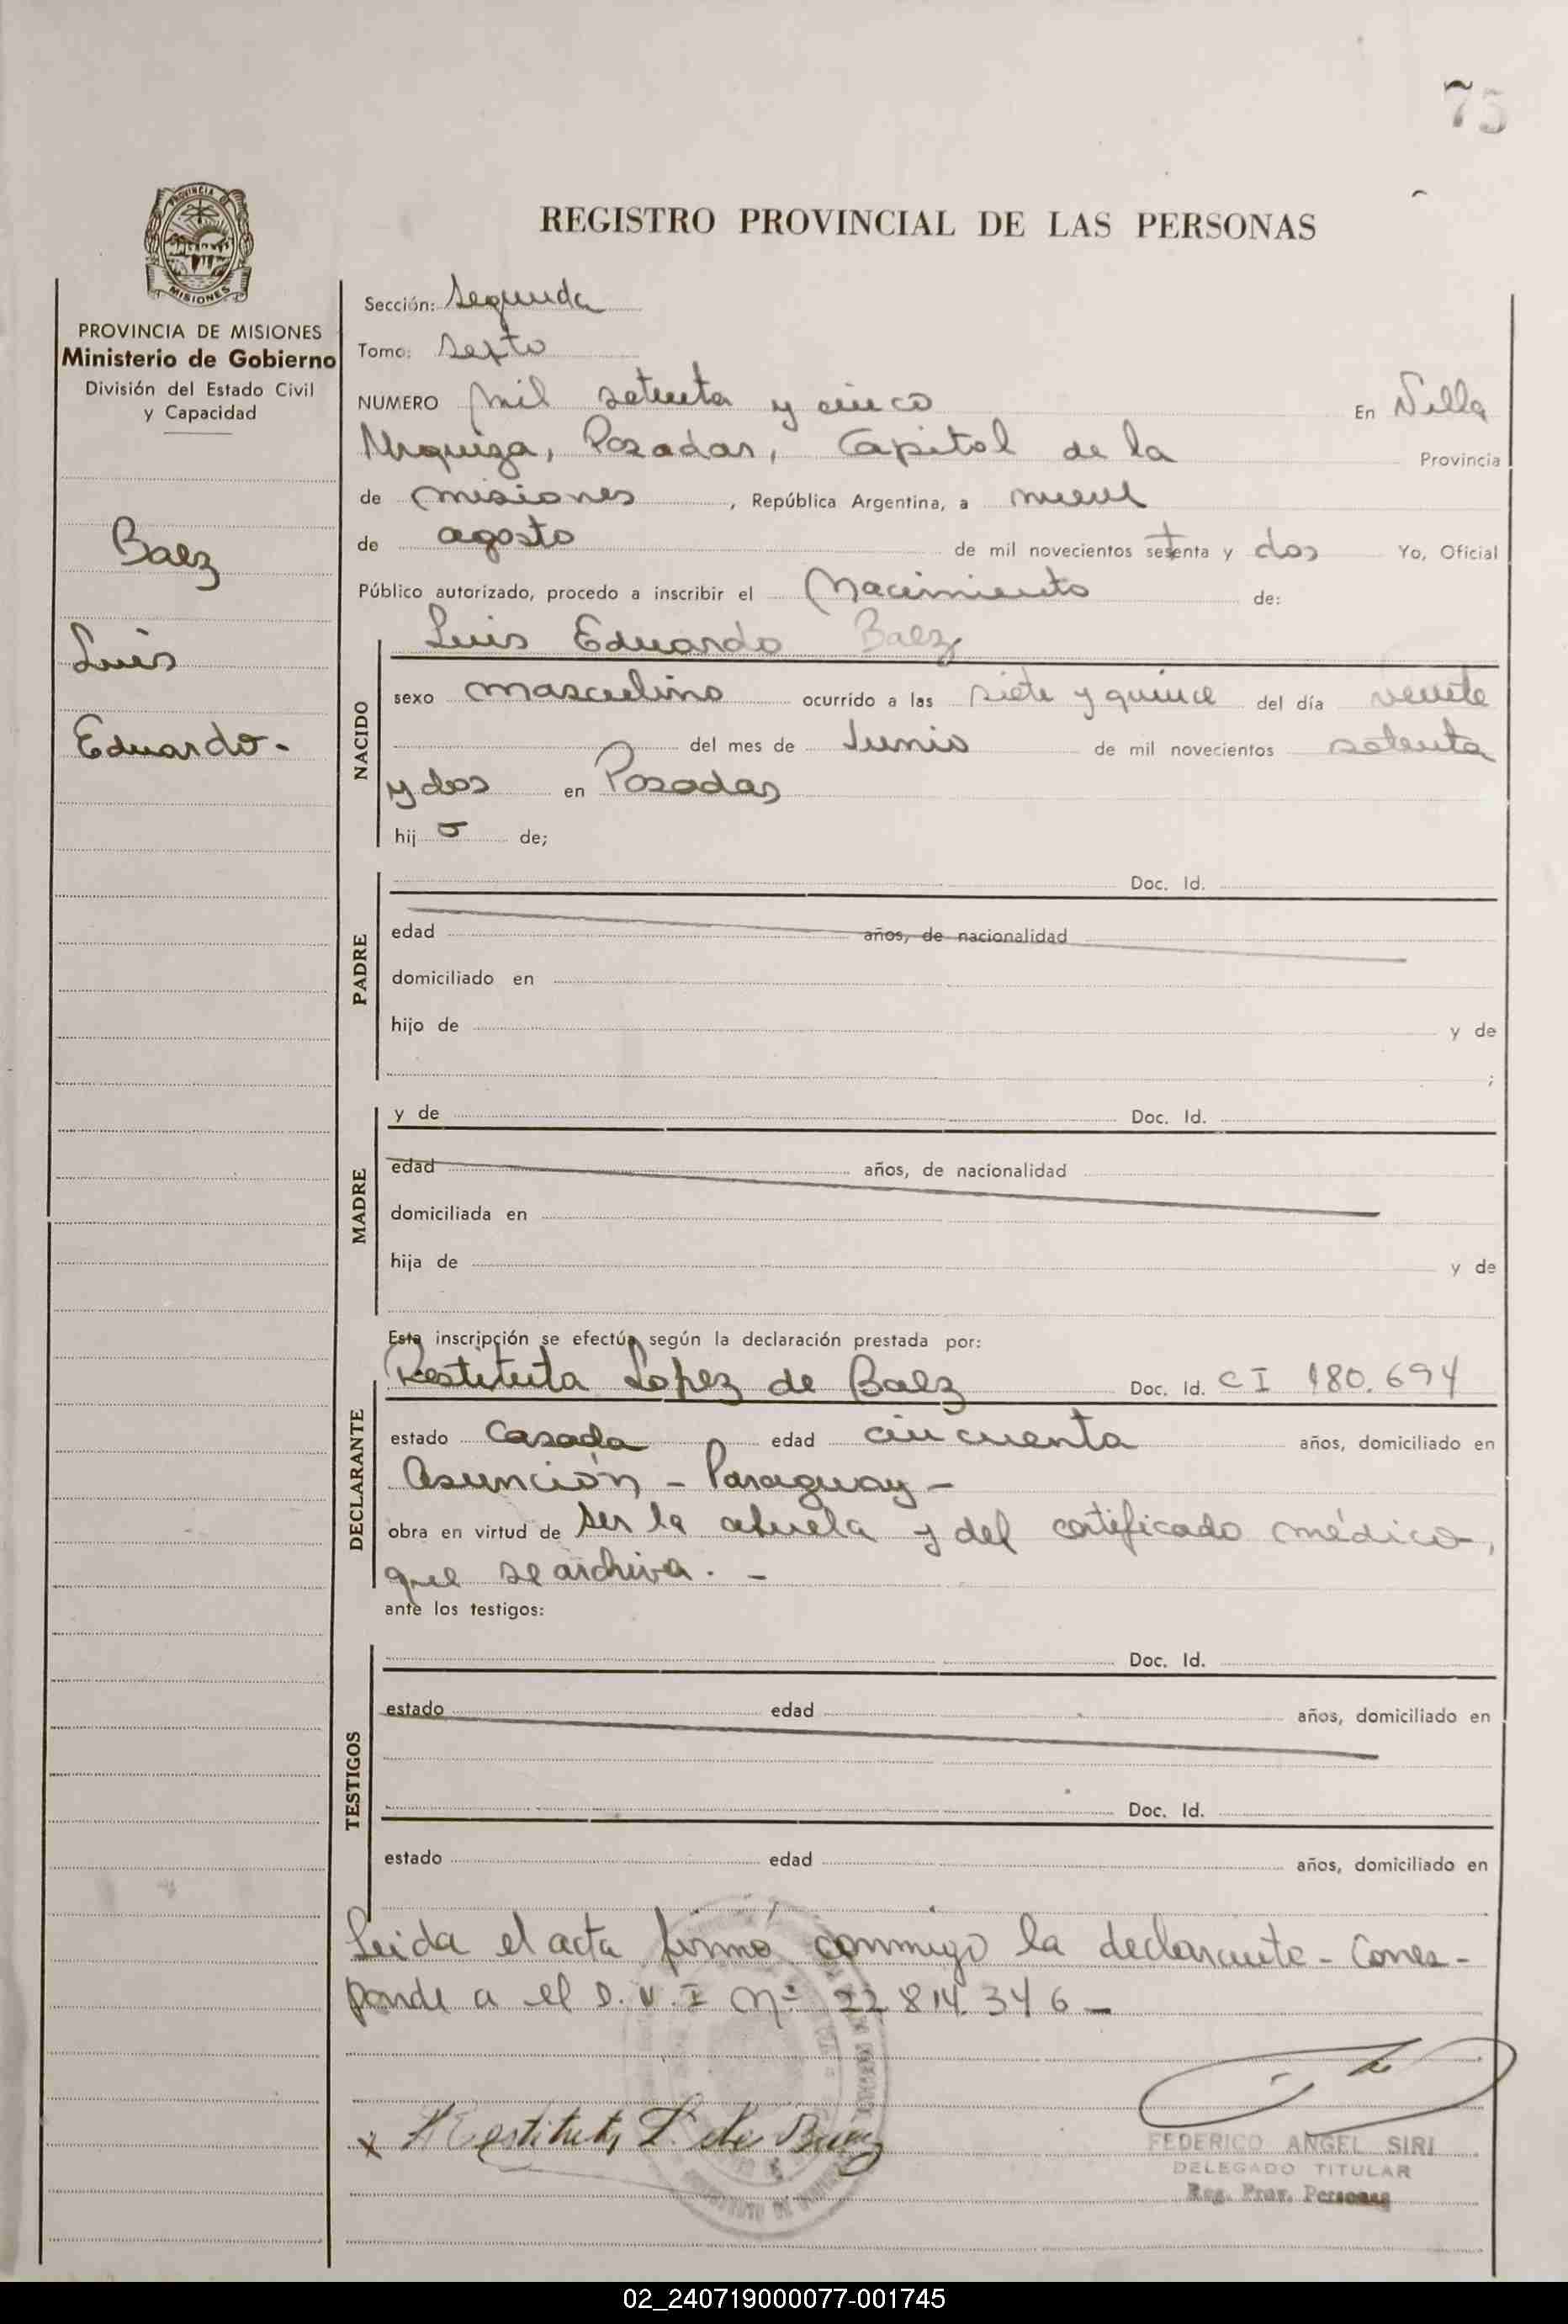 75
REGISTRO PROVINCIAL DE LAS PERSONAS
PROVINCIA DE MISIONES
Ministerio de Gobierno
División del Estado Civil
y Capacidad
Baez
Luis
Eduardo-
Sección: Segunda
Tomo: Septo
NUMERO mil setenta y cinco En Villa
Urquiza, Posadas, Capital de la Provincia
de misiones, República Argentina, a nueve
de agosto de mil novecientos setenta y dos Yo, Oficial
Público autorizado, procedo a inscribir el Nacimiento de:
Luis Eduardo Baez
NACIDO
sexo masculino ocurrido a las siete y quince del día veinte
del mes de Junio de mil novecientos setenta
y dos en Posadas
hijo de;
PADRE
Doc. Id.
edad años, de nacionalidad
domiciliado en
hijo de y de
;
MADRE
y de Doc. Id.
edad años, de nacionalidad
domiciliada en
hija de y de
Esta inscripción se efectúa según la declaración prestada por:
DECLARANTE
Restituta Lopez de Baez Doc. Id. CI 180.694
estado Casada edad cincuenta años, domiciliado en
Asunción - Paraguay -
obra en virtud de ser la abuela y del certificado médico,
que se archiva. -
ante los testigos:
TESTIGOS
Doc. Id.
estado edad años, domiciliado en
Doc. Id.
estado edad años, domiciliado en
Leida el acta firmó conmigo la declarante - Corres-
ponde a el D.U.I Nº 22.814.346 -
x Restituta L. de Báez
FEDERICO ANGEL SIRI
DELEGADO TITULAR
Reg. Prov. Personas
02_240719000077-001745